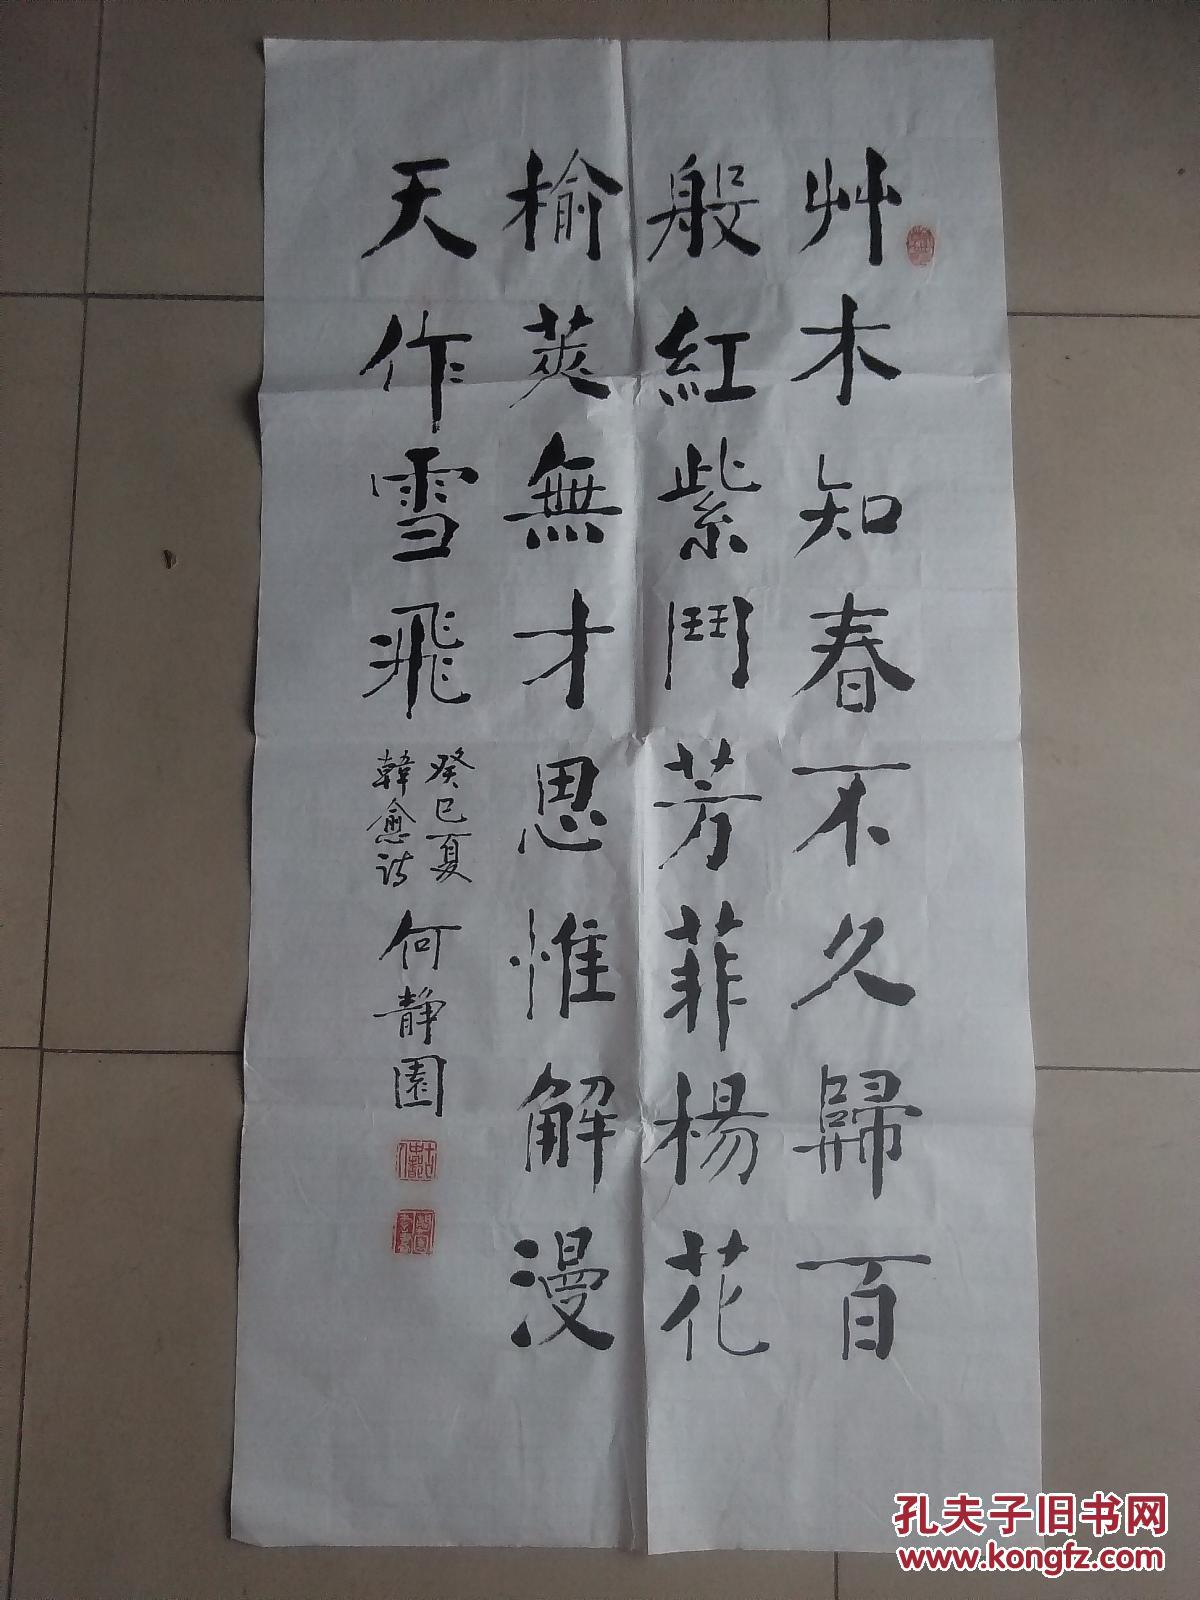 艸木知春不久歸百
般紅紫鬥芳菲楊花
榆莢無才思惟解漫
天作雪飛
癸巳夏
韓愈诗
何靜園
孔夫子旧书网
www.kongfz.com